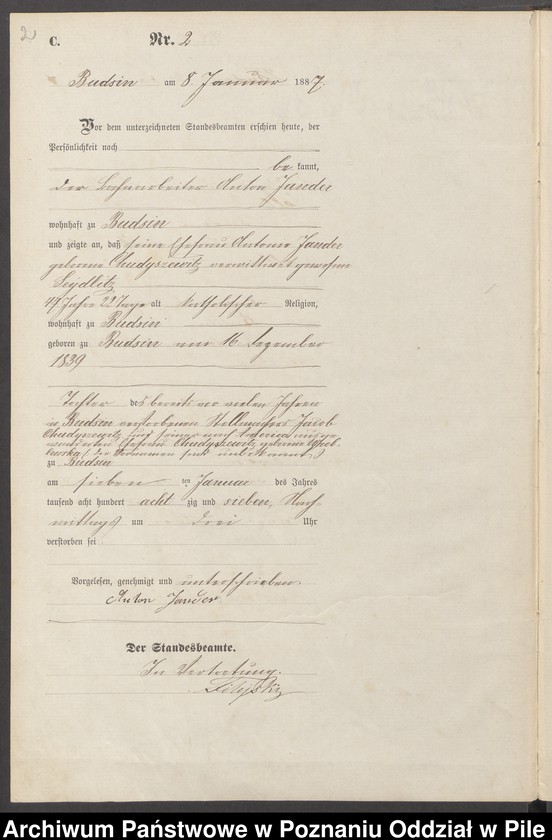 2
C. Nr. 2
Budsin am 8. Januar 1887.
Vor dem unterzeichneten Standesbeamten erschien heute, der
Persönlichkeit nach
be kannt,
der Bahnarbeiter Anton Jander
wohnhaft zu Budsin
und zeigte an, daß seine Ehefrau Antonie Jander
geborene Chudyszewitz verwittwet gewesene
Seydlitz
47 Jahre 22 Tage alt katholischer Religion,
wohnhaft zu Budsin
geboren zu Budsin am 16 Dezember
1839
Tochter des bereits vor vielen Jahren
in Budsin verstorbenen Stellmachers Jacob
Chudyszewitz und nach
Ehefrau Chudyszewitz geborene
die Vornamen sind unbekannt
zu Budsin
am sieben ten Januar des Jahres
tausend acht hundert acht zig und sieben, Nach-
mittags um drei Uhr
verstorben sei
Vorgelesen, genehmigt und unterschrieben.
Anton Jander
Der Standesbeamte.
In Vertretung.
Archiwum Państwowe w Poznaniu Oddział w Pile